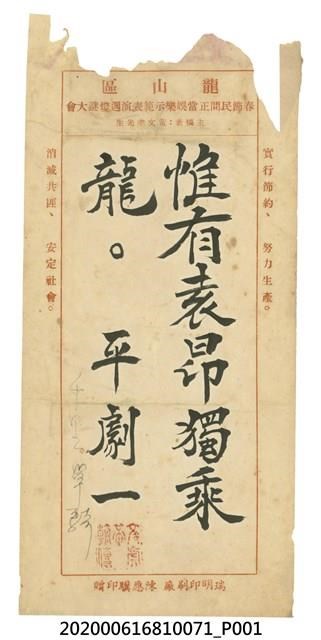 龍山區
春節民間正當娛樂示範表演週燈謎大會
實行節約、 努力生產。
惟有袁昂獨乘
龍。 平劇一
千里單騎
消滅共匪、 安定社會。
瑞明印刷廠 印贈